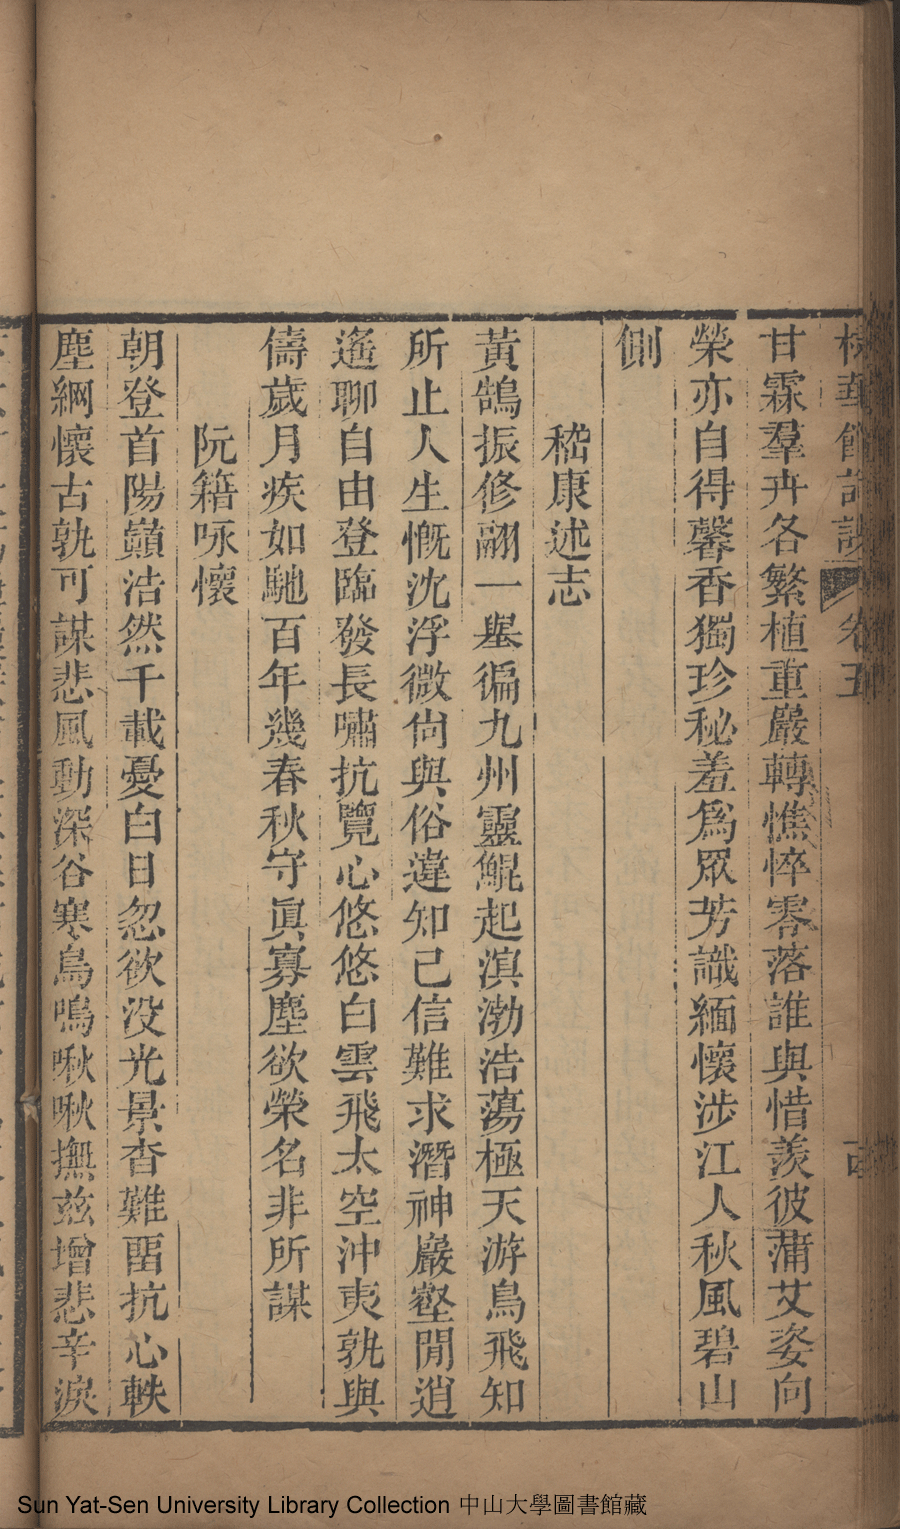 卷五
甘霖羣卉各繁植重巖轉憔悴零落誰與惜羨彼蒲艾姿向
榮亦自得馨香獨珍秘羞爲眾芳識緬懷涉江人秋風碧山
側
嵇康述志
黃鵠振修翮一舉徧九州靈鯤起滇渤浩蕩極天游鳥飛知
所止人生慨沈浮微尙與俗違知己信難求潛神巖壑閒逍
遙聊自由登臨發長嘯抗覽心悠悠白雲飛太空沖夷孰與
儔歲月疾如馳百年幾春秋守眞寡塵欲榮名非所謀
阮籍咏懷
朝登首陽巔浩然千載憂白日忽欲没光景杳難畱抗心軼
塵網懷古孰可謀悲風動深谷寒鳥鳴啾啾撫兹增悲辛淚
Sun Yat-Sen University Library Collection 中山大學圖書館藏